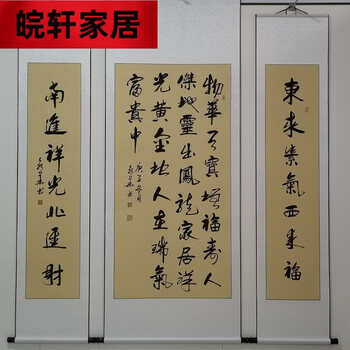 皖轩家居
東来紫氣西来福
物華天寶增福壽人
傑地靈出鳳龍家居祥
光黄金地人在瑞氣
富貴中
南進祥光北進財